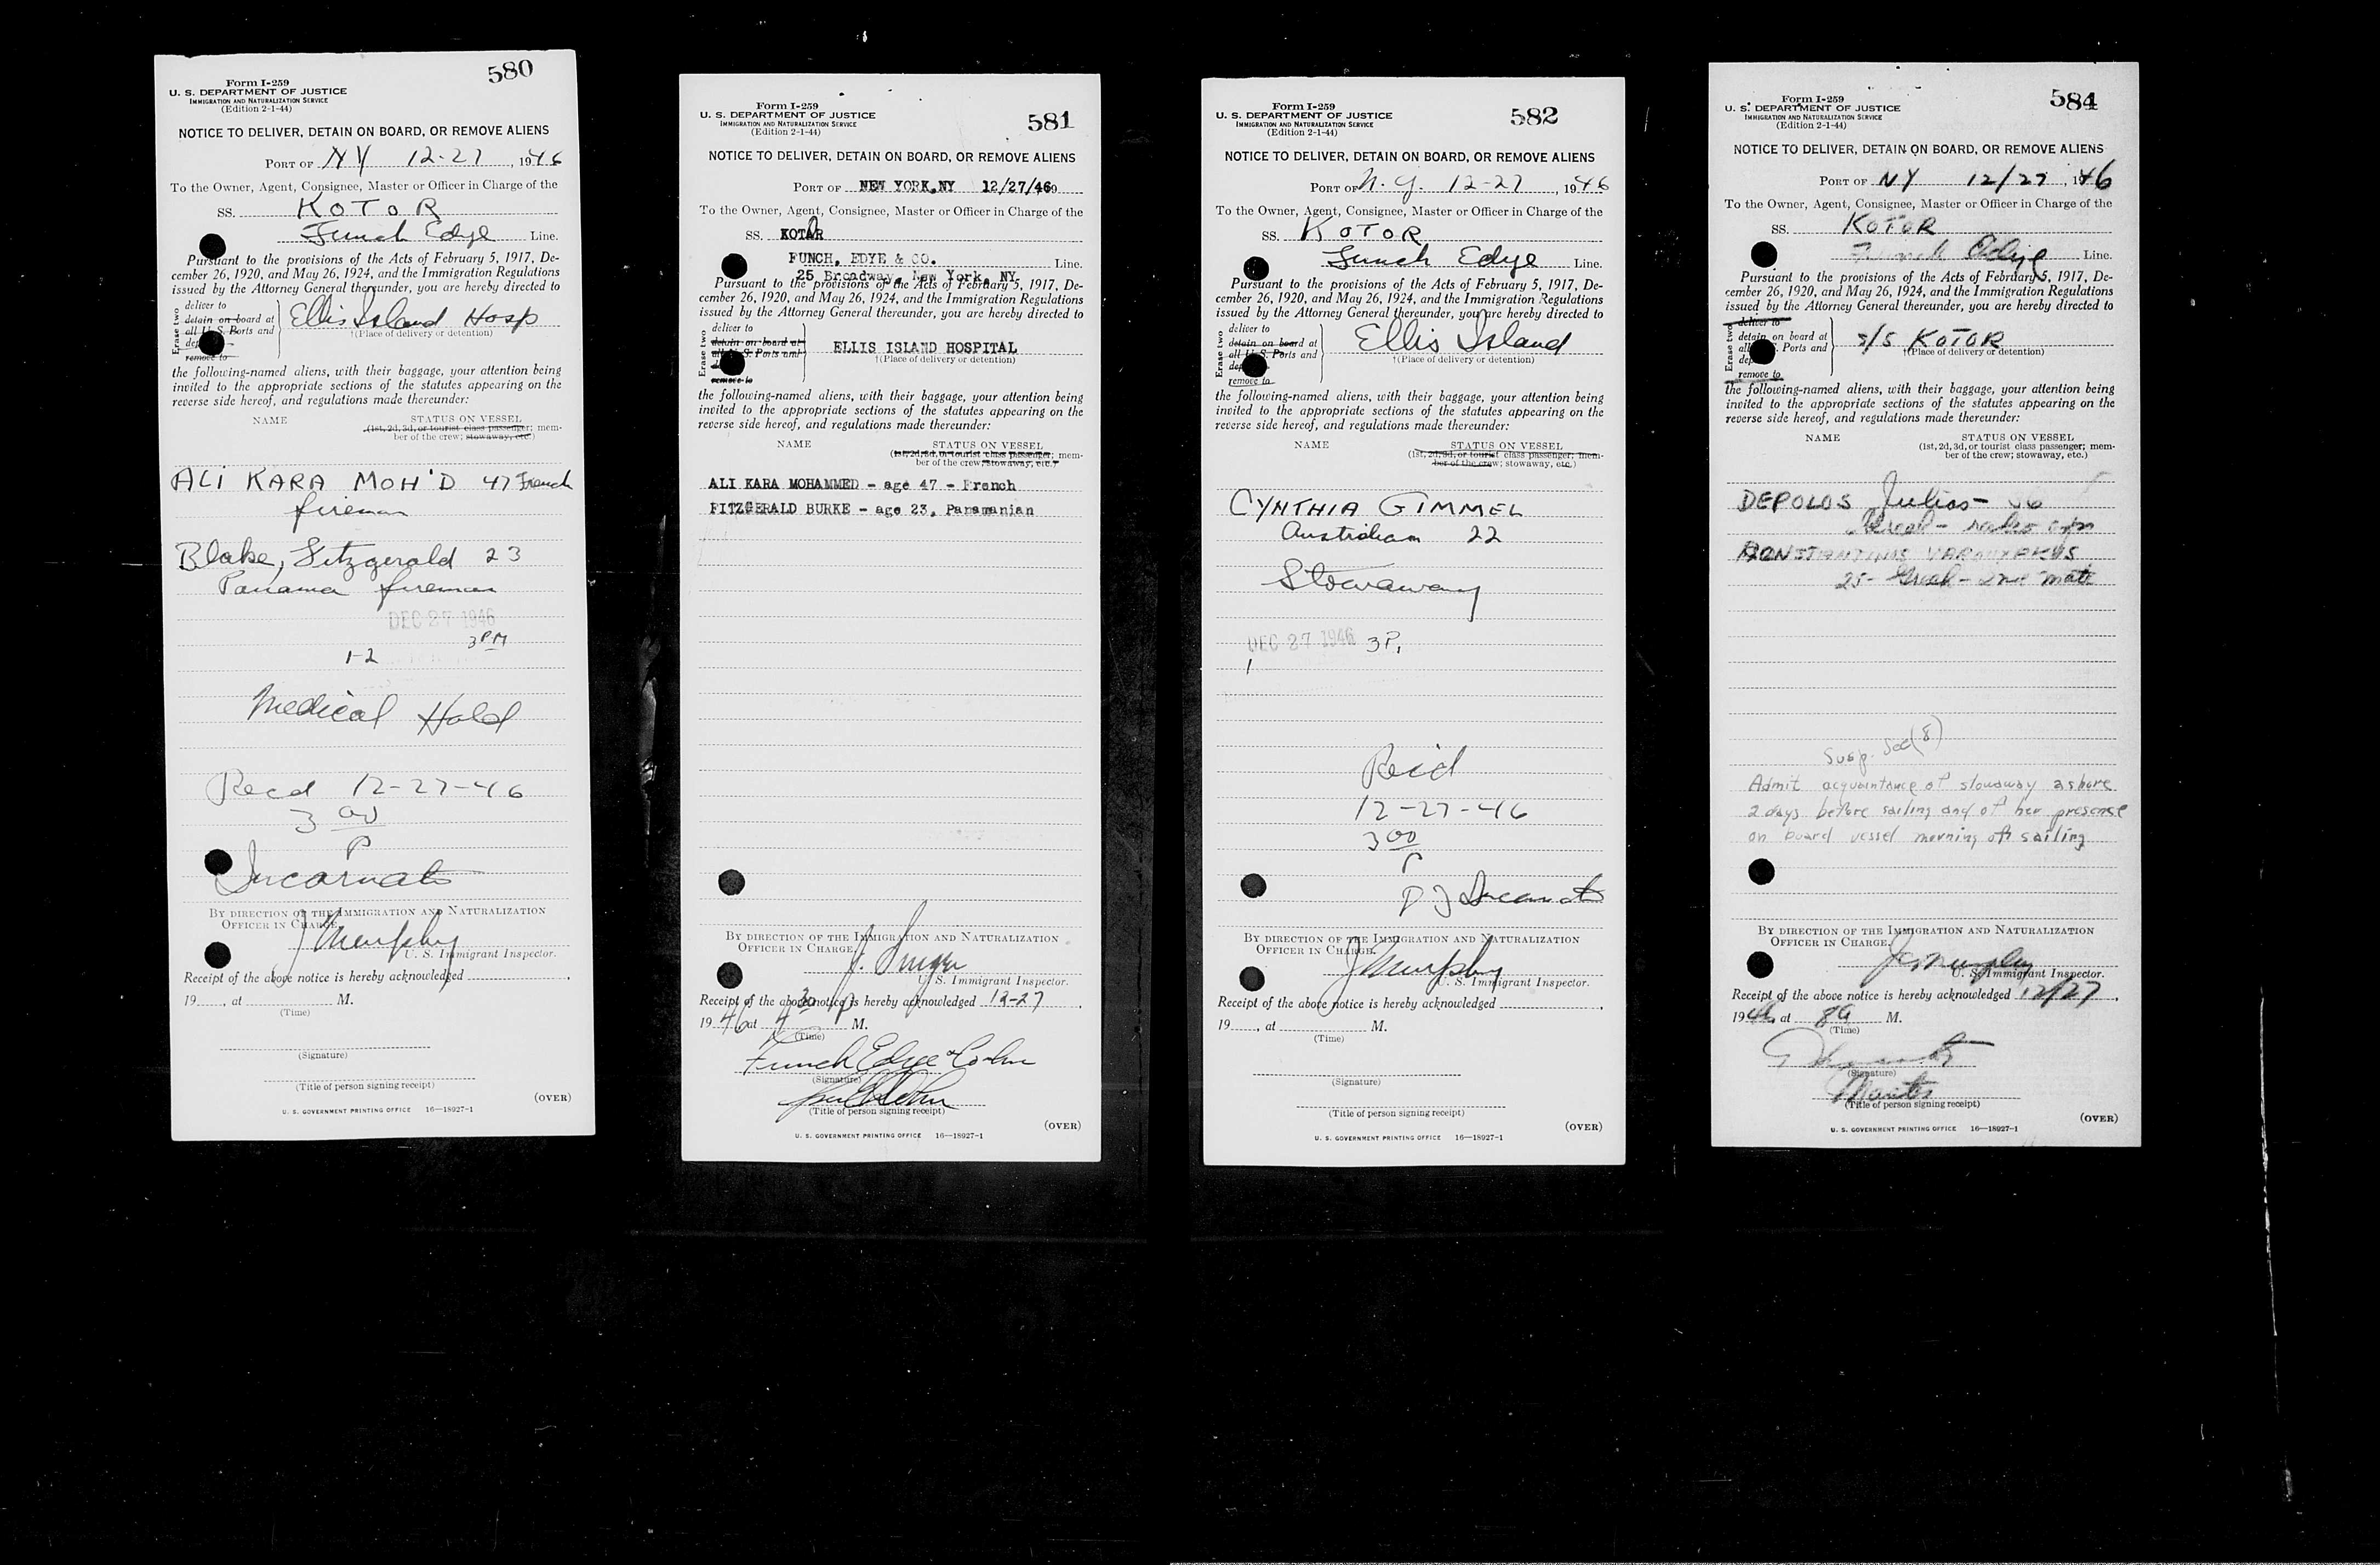 580
Form I-259
U. S. DEPARTMENT OF JUSTICE
IMMIGRATION AND NATURALIZATION SERVICE
(Edition 2-1-44)
NOTICE TO DELIVER, DETAIN ON BOARD, OR REMOVE ALIENS
PORT OF NY 12-27, 1946
To the Owner, Agent, Consignee, Master or Officer in Charge of the
SS. KOTOR
Funch Edye Line.
Pursuant to the provisions of the Acts of February 5, 1917, De-
cember 26, 1920, and May 26, 1924, and the Immigration Regulations
issued by the Attorney General thereunder, you are hereby directed to
Erase two
deliver to
detain on board at
all U. S. Ports and
remove to
Ellis Island Hosp
†(Place of delivery or detention)
the following-named aliens, with their baggage, your attention being
invited to the appropriate sections of the statutes appearing on the
reverse side hereof, and regulations made thereunder:
NAME STATUS ON VESSEL
(1st, 2d, 3d, or tourist class passenger; mem-
ber of the crew; stowaway, etc.)
ALI KARA MOH'D 47 French
fireman
Blake, Fitzgerald 23
Panama fireman
DEC 27 1946
3 PM
1-2
Medical Hold
Recd 12-27-46
3 00
P
Incarnato
BY DIRECTION OF THE IMMIGRATION AND NATURALIZATION
OFFICER IN CHARGE.
J Murphy
U. S. Immigrant Inspector.
Receipt of the above notice is hereby acknowledged
19 , at M.
(Time)
(Signature)
(Title of person signing receipt)
(OVER)
U. S. GOVERNMENT PRINTING OFFICE 16—18927-1
581
Form I-259
U. S. DEPARTMENT OF JUSTICE
IMMIGRATION AND NATURALIZATION SERVICE
(Edition 2-1-44)
NOTICE TO DELIVER, DETAIN ON BOARD, OR REMOVE ALIENS
PORT OF NEW YORK,NY 12/27/469
To the Owner, Agent, Consignee, Master or Officer in Charge of the
SS. KOTOR
FUNCH, EDYE & CO. Line.
25 Broadway, New York, NY.
Pursuant to the provisions of the Acts of February 5, 1917, De-
cember 26, 1920, and May 26, 1924, and the Immigration Regulations
issued by the Attorney General thereunder, you are hereby directed to
Erase two
deliver to
detain on board at
all U. S. Ports and
remove to
ELLIS ISLAND HOSPITAL
†(Place of delivery or detention)
the following-named aliens, with their baggage, your attention being
invited to the appropriate sections of the statutes appearing on the
reverse side hereof, and regulations made thereunder:
NAME STATUS ON VESSEL
(1st, 2d, 3d, or tourist class passenger; mem-
ber of the crew; stowaway, etc.)
ALI KARA MOHAMMED - age 47 - French
FITZGERALD BURKE - age 23, Panamanian
BY DIRECTION OF THE IMMIGRATION AND NATURALIZATION
OFFICER IN CHARGE.
J.
U. S. Immigrant Inspector.
Receipt of the above notice is hereby acknowledged 12-27
1946 at 4 30 P M.
(Time)
Funch Edye & Co Inc
(Signature)
(Title of person signing receipt)
(OVER)
U. S. GOVERNMENT PRINTING OFFICE 16—18927-1
582
Form I-259
U. S. DEPARTMENT OF JUSTICE
IMMIGRATION AND NATURALIZATION SERVICE
(Edition 2-1-44)
NOTICE TO DELIVER, DETAIN ON BOARD, OR REMOVE ALIENS
PORT OF N.Y. 12-27, 1946
To the Owner, Agent, Consignee, Master or Officer in Charge of the
SS. KOTOR
Funch Edye Line.
Pursuant to the provisions of the Acts of February 5, 1917, De-
cember 26, 1920, and May 26, 1924, and the Immigration Regulations
issued by the Attorney General thereunder, you are hereby directed to
Erase two
deliver to
detain on board at
all U. S. Ports and
remove to
Ellis Island
†(Place of delivery or detention)
the following-named aliens, with their baggage, your attention being
invited to the appropriate sections of the statutes appearing on the
reverse side hereof, and regulations made thereunder:
NAME STATUS ON VESSEL
(1st, 2d, 3d, or tourist class passenger; mem-
ber of the crew; stowaway, etc.)
CYNTHIA GIMMEL
22
Stowaway
DEC 27 1946 3P.
1
Recd
12-27-46
3 00
P
P J Incarnato
BY DIRECTION OF THE IMMIGRATION AND NATURALIZATION
OFFICER IN CHARGE.
J Murphy
U. S. Immigrant Inspector.
Receipt of the above notice is hereby acknowledged
19 , at M.
(Time)
(Signature)
(Title of person signing receipt)
(OVER)
U. S. GOVERNMENT PRINTING OFFICE 16—18927-1
584
Form I-259
U. S. DEPARTMENT OF JUSTICE
IMMIGRATION AND NATURALIZATION SERVICE
(Edition 2-1-44)
NOTICE TO DELIVER, DETAIN ON BOARD, OR REMOVE ALIENS
PORT OF NY 12/27, 1946
To the Owner, Agent, Consignee, Master or Officer in Charge of the
SS. KOTOR
Funch Edye Line.
Pursuant to the provisions of the Acts of February 5, 1917, De-
cember 26, 1920, and May 26, 1924, and the Immigration Regulations
issued by the Attorney General thereunder, you are hereby directed to
Erase two
deliver to
detain on board at
all U. S. Ports and
remove to
S/S KOTOR
†(Place of delivery or detention)
the following-named aliens, with their baggage, your attention being
invited to the appropriate sections of the statutes appearing on the
reverse side hereof, and regulations made thereunder:
NAME STATUS ON VESSEL
(1st, 2d, 3d, or tourist class passenger; mem-
ber of the crew; stowaway, etc.)
DEPOLOS Julios -
Greek - radio opr
25 - Greek - 2nd mate
Susp. Sec (8)
Admit acquaintance of stowaway ashore
2 days before sailing and of her presence
on board vessel morning of sailing
BY DIRECTION OF THE IMMIGRATION AND NATURALIZATION
OFFICER IN CHARGE.
J Murphy
U. S. Immigrant Inspector.
Receipt of the above notice is hereby acknowledged 12/27,
1946, at 8A M.
(Time)
(Signature)
Master
(Title of person signing receipt)
(OVER)
U. S. GOVERNMENT PRINTING OFFICE 16—18927-1